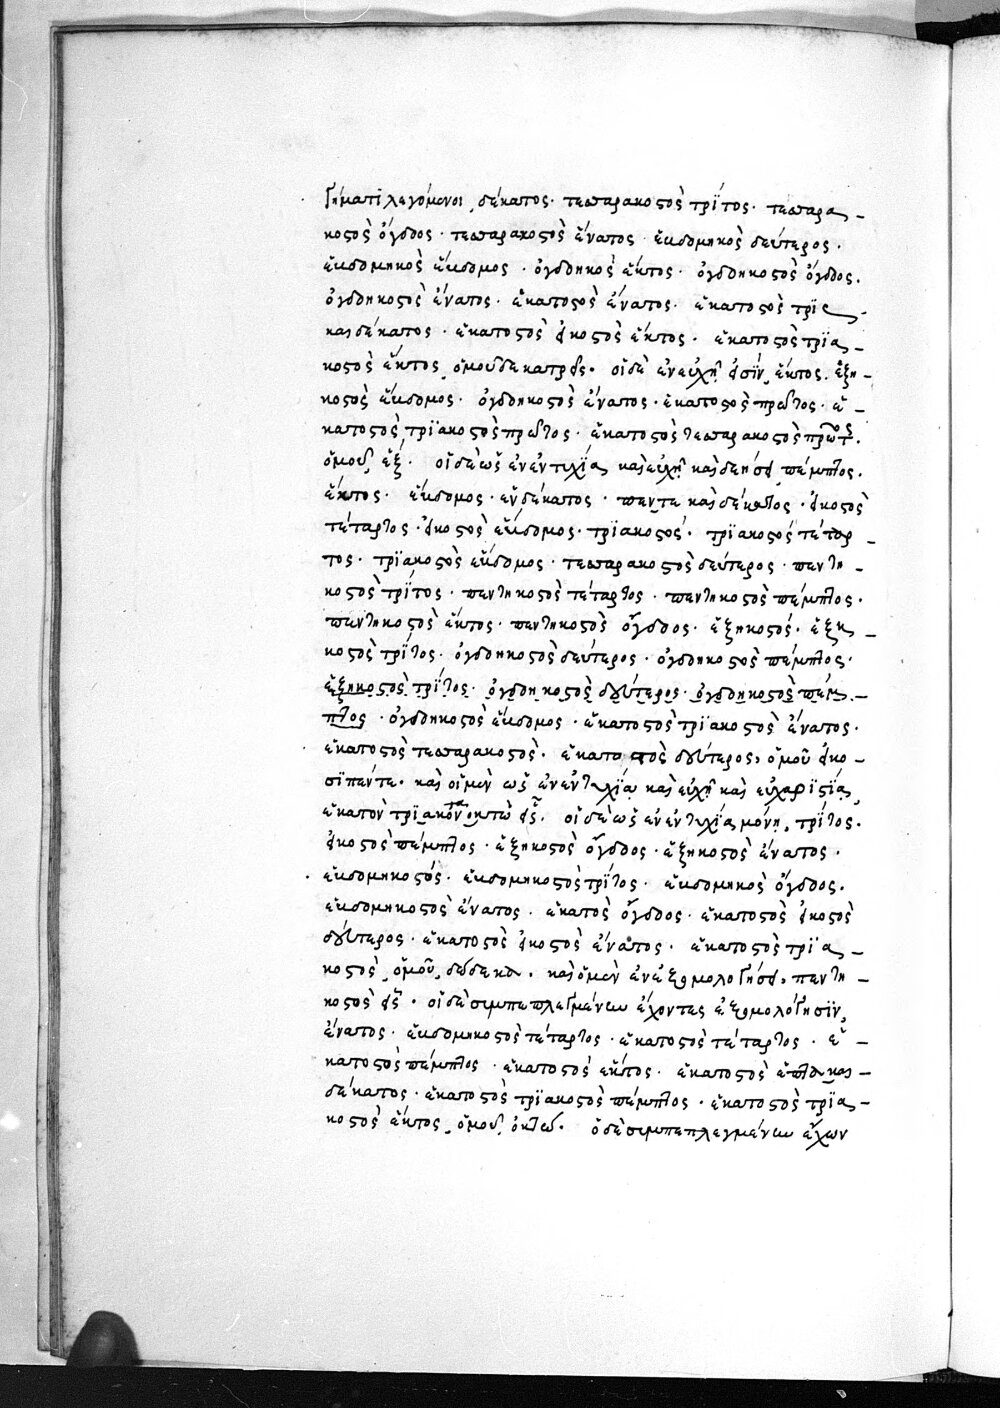 γήματι λεγόμενοι, δέκατος· τεσσαρακοστὸς τρίτος· τεσσαρα-
κοστὸς ὄγδοος· τεσσαρακοστὸς ἔνατος· ἑκδομηκοστὸς δεύτερος·
ἑκδομηκοστὸς ἕκδομος· ὀγδοηκοστὸς ἕκτος· ὀγδοηκοστὸς ὄγδοος·
ὀγδοηκοστὸς ἔνατος· ἑκατοστὸς ἔνατος· ἑκατοστὸς τρὶς
καιδέκατος· ἑκατοστὸς εἰκοστὸς ἕκτος· ἑκατοστὸς τρια-
κοστὸς ἕκτος, ὁμοῦ δεκατρεῖς· οἱ δὲ ἐν εὐχῇ εἰσὶν, ἕκτος· ἑξη-
κοστὸς ἕκδομος· ὀγδοηκοστὸς ἔνατος· ἑκατοστὸς πρῶτος· ἑ-
κατοστὸς τριακοστὸς πρῶτος· ἑκατοστὸς τεσσαρακοστὸς πρῶτος·
ὁμοῦ, ἕξ· οἱ δὲ ὡς ἐν ἐντυχίᾳ καὶ εὐχῇ καὶ δεήσει, πέμπτος·
ἕκτος· ἕκδομος· ἑνδέκατος· πέντε καὶ δέκατος· εἰκοστὸς
τέταρτος· εἰκοστὸς ἕκδομος· τριακοστός· τριακοστὸς τέταρ-
τος· τριακοστὸς ἕκδομος· τεσσαρακοστὸς δεύτερος· πεντη-
κοστὸς τρίτος· πεντηκοστὸς τέταρτος· πεντηκοστὸς πέμπτος·
πεντηκοστὸς ἕκτος· πεντηκοστὸς ὄγδοος· ἑξηκοστός· ἑξη-
κοστὸς τρίτος· ὀγδοηκοστὸς δεύτερος· ὀγδοηκοστὸς πέμπτος·
ἑξηκοστὸς τρίτος· ὀγδοηκοστὸς δεύτερος· ὀγδοηκοστὸς πέμ-
πτος· ὀγδοηκοστὸς ἕκδομος· ἑκατοστὸς τριακοστὸς ἔνατος·
ἑκατοστὸς τεσσαρακοστὸς· ἑκατοστὸς δεύτερος, ὁμοῦ εἰκο-
σιπέντε· καὶ οἱ μὲν ὡς ἐν ἐντυχίᾳ καὶ εὐχῇ καὶ εὐχαριστίᾳ,
ἑκατὸν τριακονταοκτὼ εἷς· οἱ δὲ ὡς ἐν ἐντυχίᾳ μόνῃ, τρίτος·
εἰκοστὸς πέμπτος· ἑξηκοστὸς ὄγδοος· ἑξηκοστὸς ἔνατος·
ἑκδομηκοστός· ἑκδομηκοστὸς τρίτος· ἑκδομηκοστὸς ὄγδοος·
ἑκδομηκοστὸς ἔνατος· ἑκατοστὸς ὄγδοος· ἑκατοστὸς εἰκοστὸς
δεύτερος· ἑκατοστὸς εἰκοστὸς ἔνατος· ἑκατοστὸς τρια-
κοστὸς, ὁμοῦ, δώδεκα· καὶ ὁ μὲν ἐν ἐξομολογήσει, πεντη-
κοστὸς εἷς· οἱ δὲ συμπεπλεγμένως ἔχοντες ἐξομολόγησιν,
ἔνατος· ἑκδομηκοστὸς τέταρτος· ἑκατοστὸς τέταρτος· ἑ-
κατοστὸς πέμπτος· ἑκατοστὸς ἕκτος· ἑκατοστὸς ἑπτὰ καὶ-
δέκατος· ἑκατοστὸς τριακοστὸς πέμπτος· ἑκατοστὸς τρια-
κοστὸς ἕκτος, ὁμοῦ, ὀκτώ· ὁ δὲ συμπεπλεγμένως ἔχων